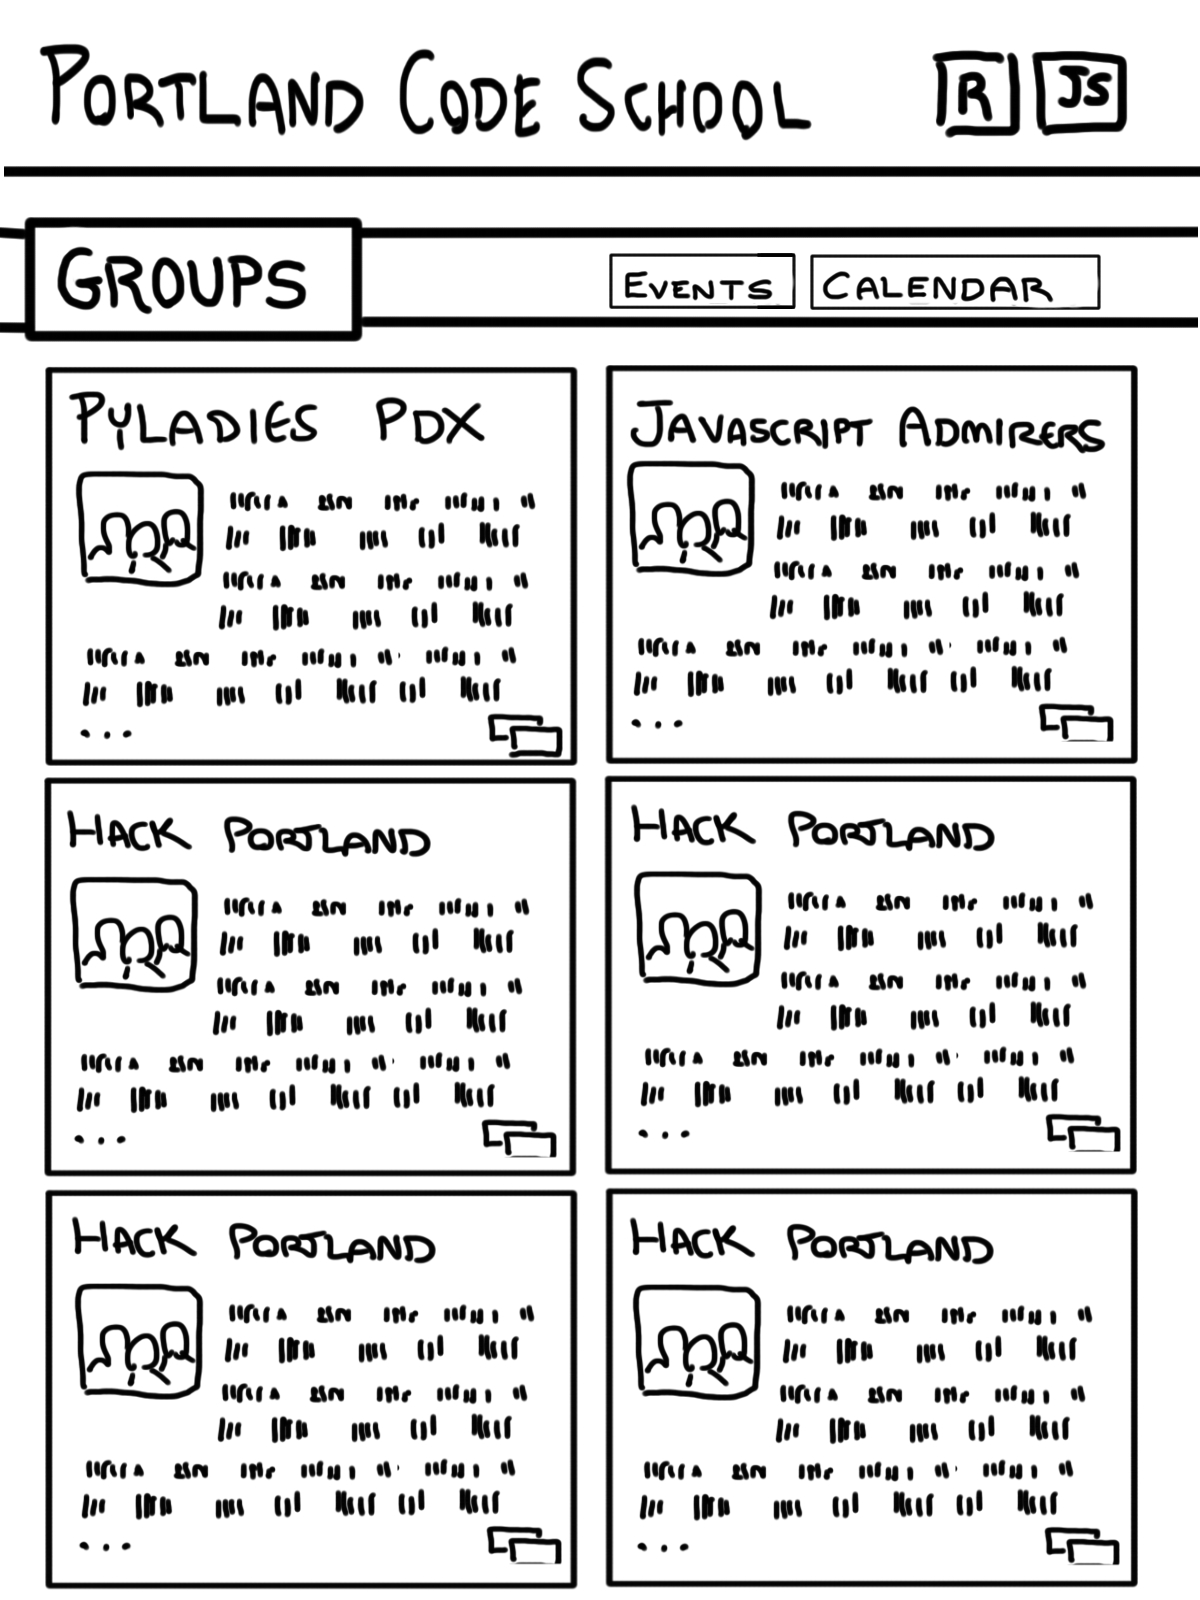 PORTLAND CODE SCHOOL R JS
GROUPS EVENTS CALENDAR
PYLADIES PDX
JAVASCRIPT ADMIRERS
...
...
HACK PORTLAND
HACK PORTLAND
...
...
HACK PORTLAND
HACK PORTLAND
...
...